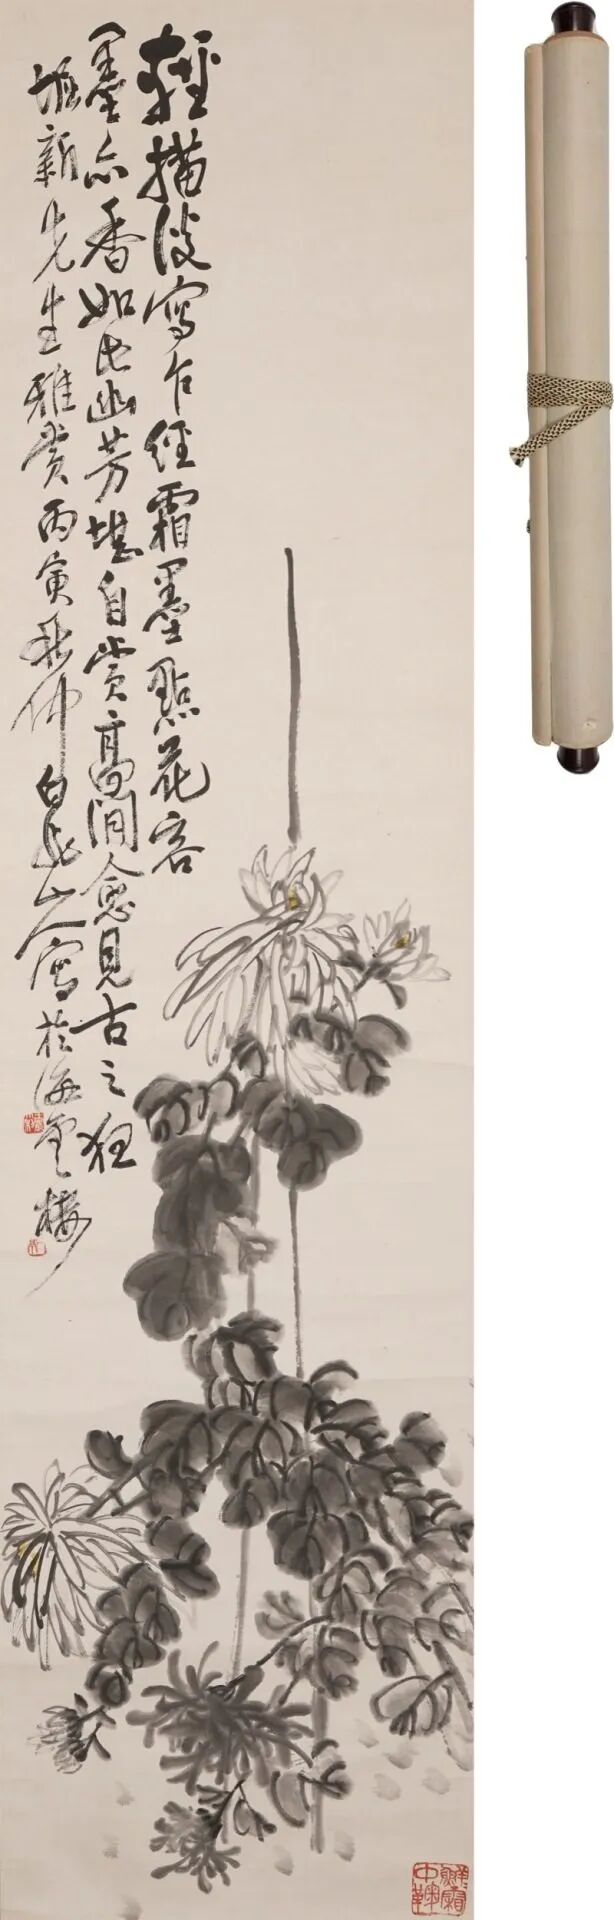 輕描淡寫乍經霜墨點花容
墨亦香如此幽芳堪自賞高閒愈見古之狂
新先生雅賞丙寅秋仲白龍山人寫於海雲樓